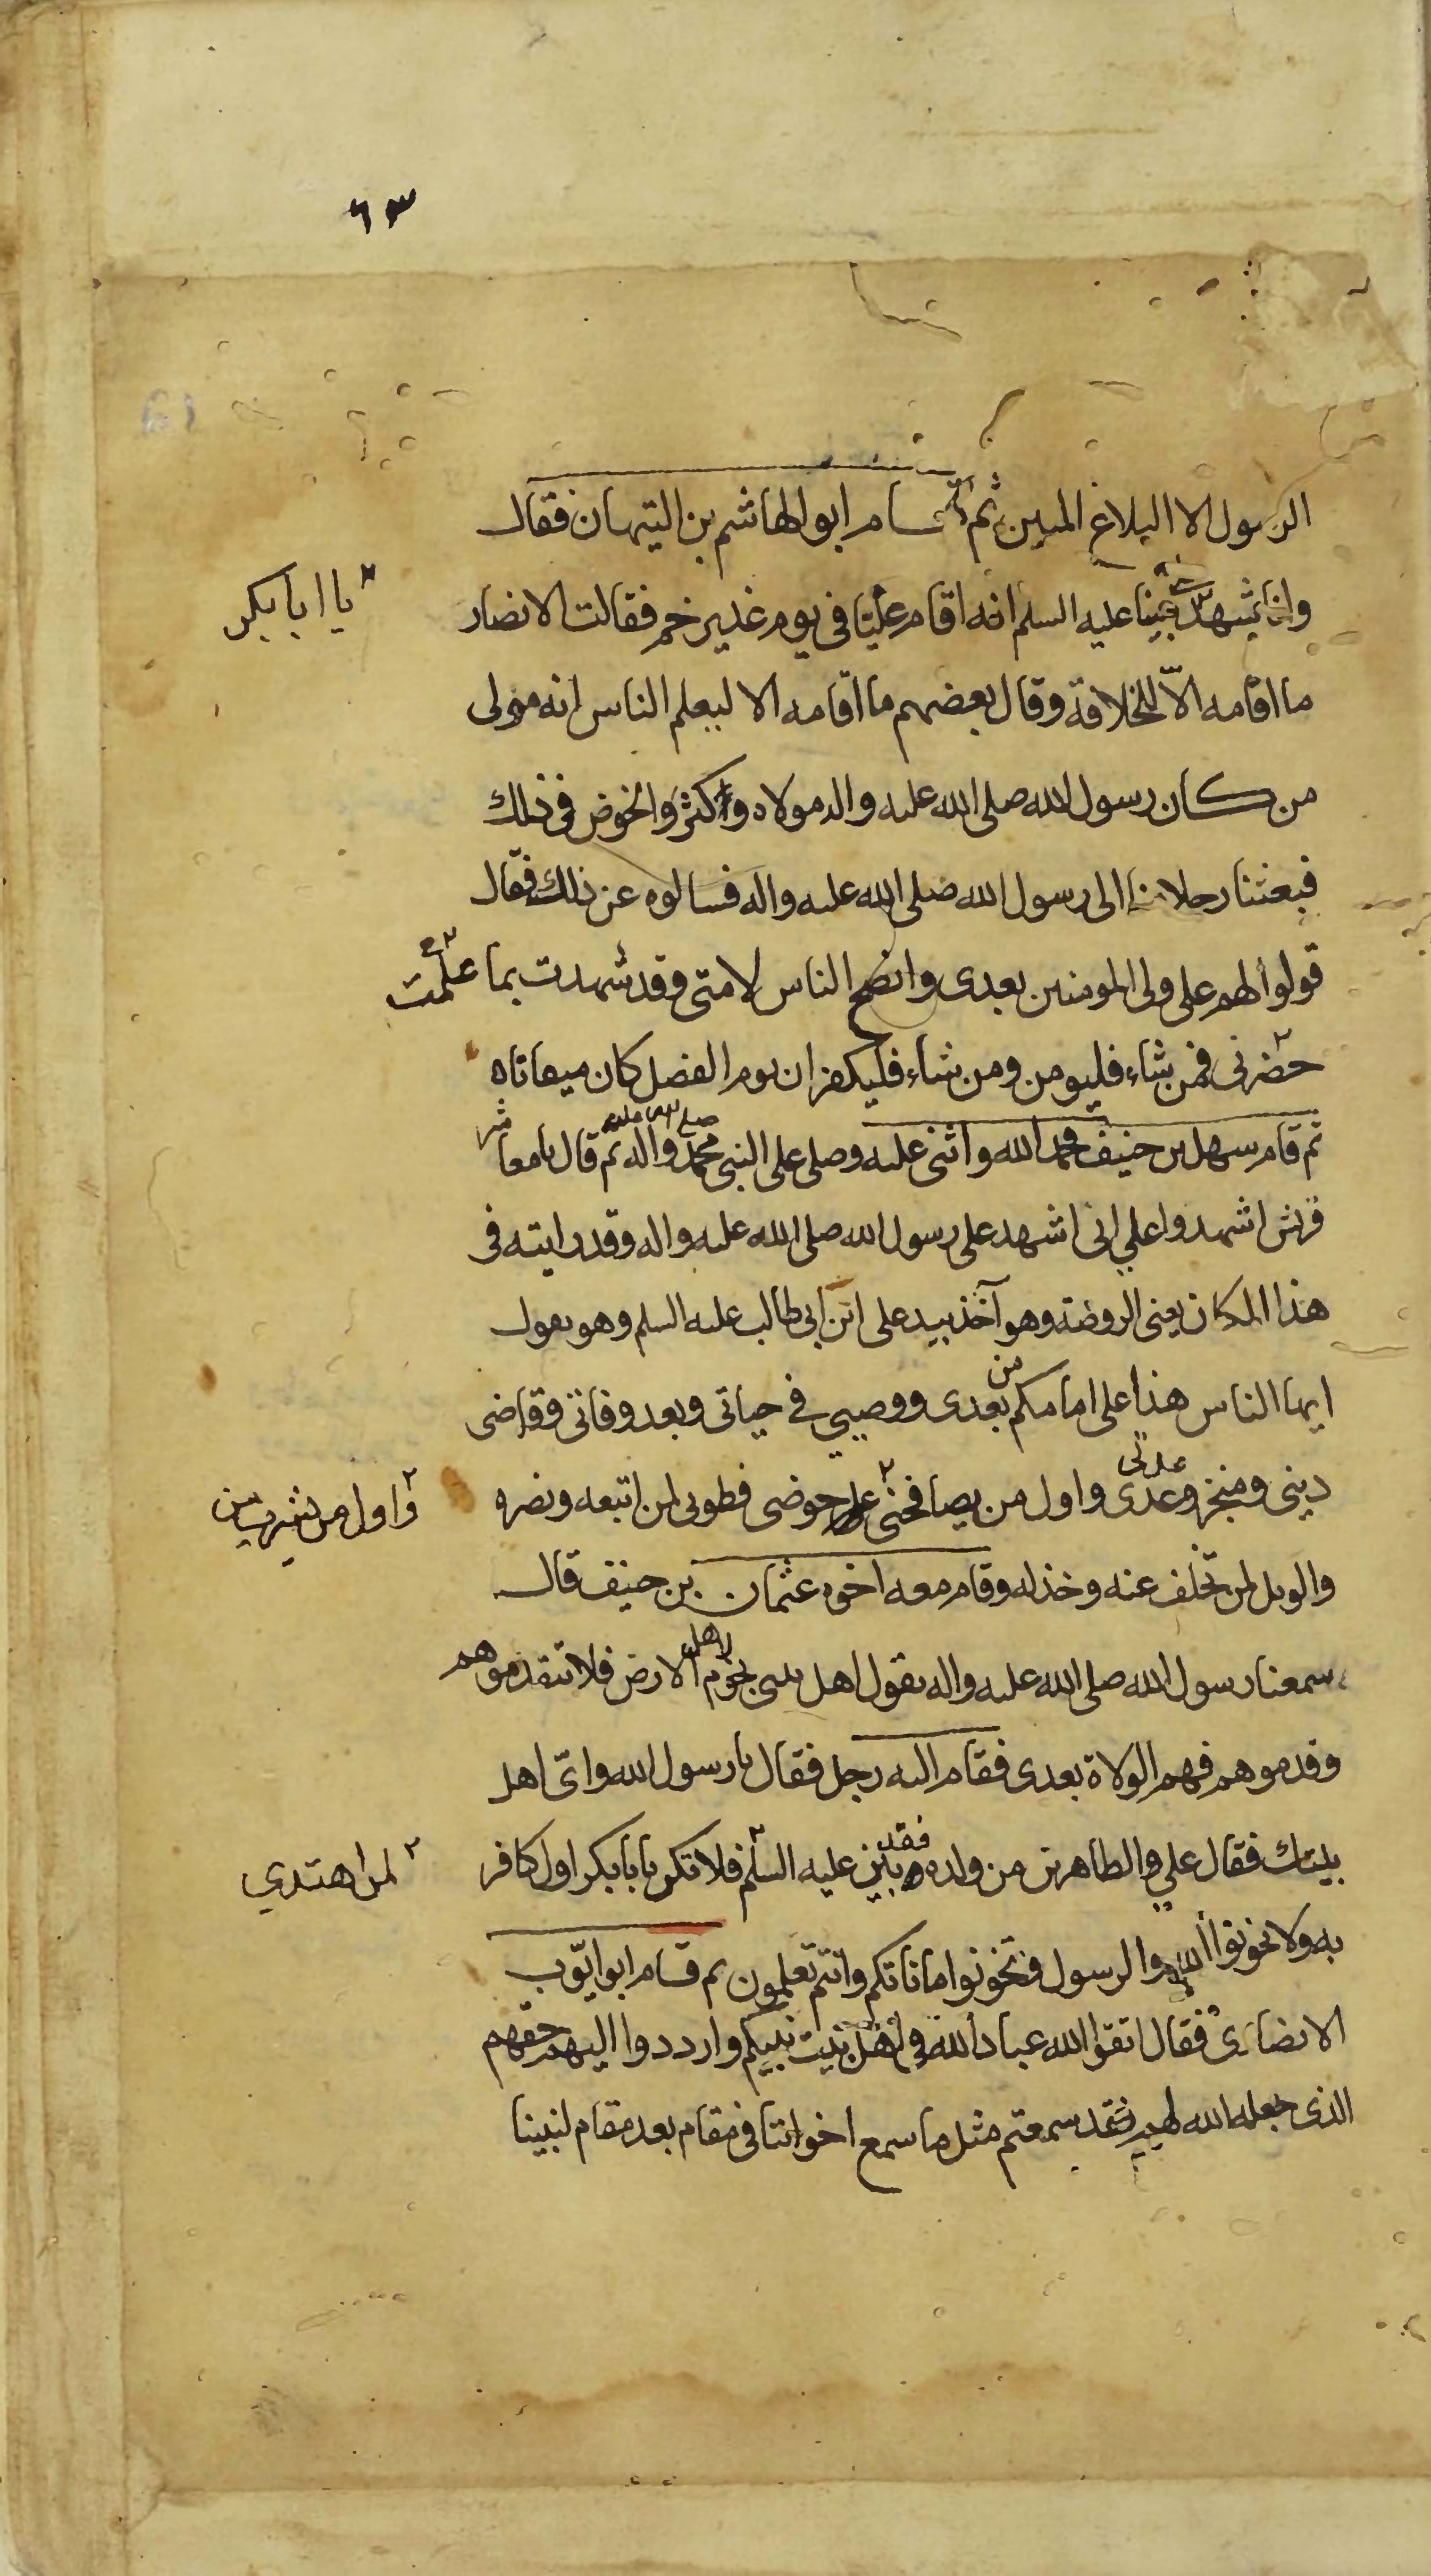 ٦٣
الرسول الا البلاغ المبين ثم قام ابو الهاشم بن التيهان فقال
وانا نشهد على نبينا عليه السلم انه اقام عليّا في يوم غدير خم فقالت الانصار
يا ابا بكر
ما اقامه الاّ للخلافة وقال بعضهم ما اقامه الا ليعلم الناس انه مولى
من كان رسول الله صلى الله عليه واله مولاه واكثروا الخوض في ذلك
فبعثنا رجلا منا الى رسول الله صلى الله عليه واله فسالوه عن ذلك فقال
قولوا لهم على ولى المومنين بعدى وانصح الناس لامتى وقد شهدت بما علمت
حضرنى فمن شاء فليومن ومن شاء فليكفر ان يوم الفصل كان ميقاتا
ثم قام سهل بن حنيف فحمد الله واثنى عليه وصلى على النبى محمد واله ثم قال يا معاشر
قريش اشهدوا علي انى اشهد على رسول الله صلى الله عليه واله وقد رايته فى
هذا المكان يعنى الروضة وهو آخذ بيد على ابن ابى طالب عليه السلم وهو يقول
ايها الناس هذا على امامكم من بعدى ووصيي في حياتى وبعد وفاتى وقاضى
دينى ومنجز وعدى واول من يصافحنى على حوضى فطوبى لمن اتبعه ونصره
عدتى
والويل لمن تخلف عنه وخذله وقام معه اخوه عثمان بن حنيف قال
سمعنا رسول الله صلى الله عليه واله يقول اهل بيتى نجوم لاهل الارض فلا تتقدموهم
وقدموهم فهم الولاة بعدى فقام اليه رجل فقال يا رسول الله واىّ اهل
بيتك فقال علي والطاهرين من ولده فقد بين عليه السلم فلا تكن يا با بكر اول كافر
لمن اهتدي
به ولا تخونوا الله والرسول وتخونوا اماناتكم وانتم تعلمون ثم قام ابو ايّوب
الانصارى فقال اتقوا الله عباد الله في اهل بيت نبيكم وارددوا اليهم حقهم
الذى جعله الله لهم فقد سمعتم مثل ما سمع اخواننا في مقام بعد مقام لنبينا